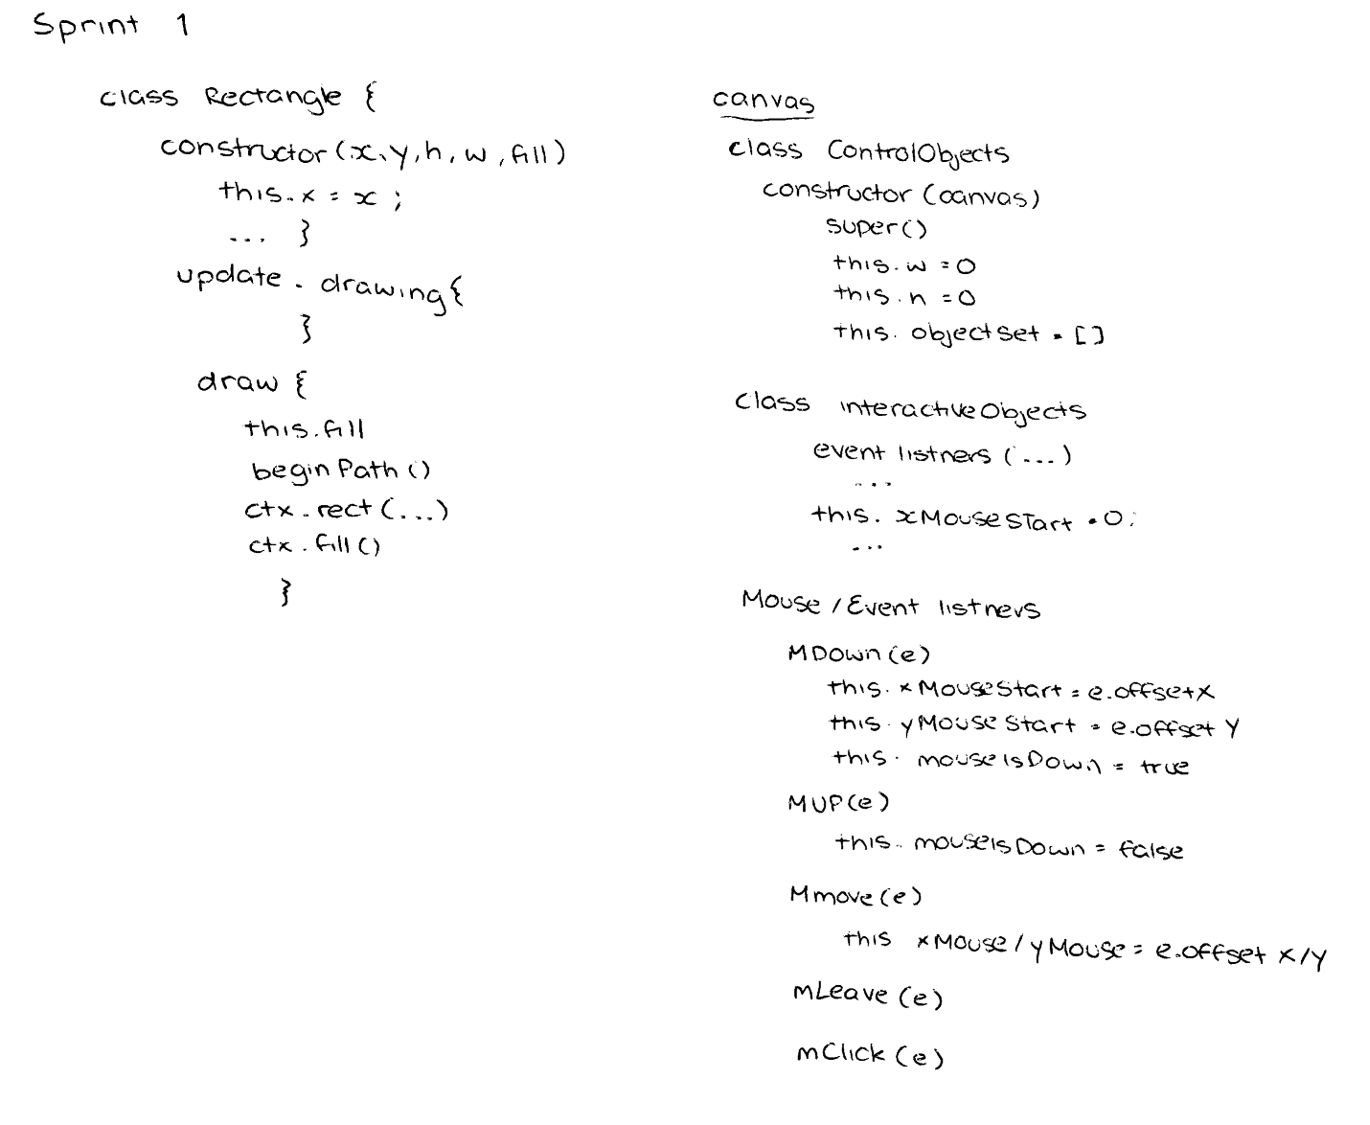 Sprint 1
class Rectangle {
constructor (x, y, h, w, fill)
this.x = x ;
... }
update . drawing {
}
draw {
this.fill
begin Path ()
ctx . rect (...)
ctx . fill ()
}
canvas
class ControlObjects
constructor (canvas)
super()
this. w = 0
this. h = 0
this. object set = []
class interactive Objects
event listners (...)
...
this. xMouse Start = 0;
...
Mouse / Event listners
MDown (e)
this. xMouseStart = e.offsetX
this. yMouse Start = e.offset Y
this. mouse is Down = true
MUP(e)
this. mouseis Down = false
Mmove (e)
this xMouse / yMouse = e.offset x/y
mLeave (e)
mClick (e)